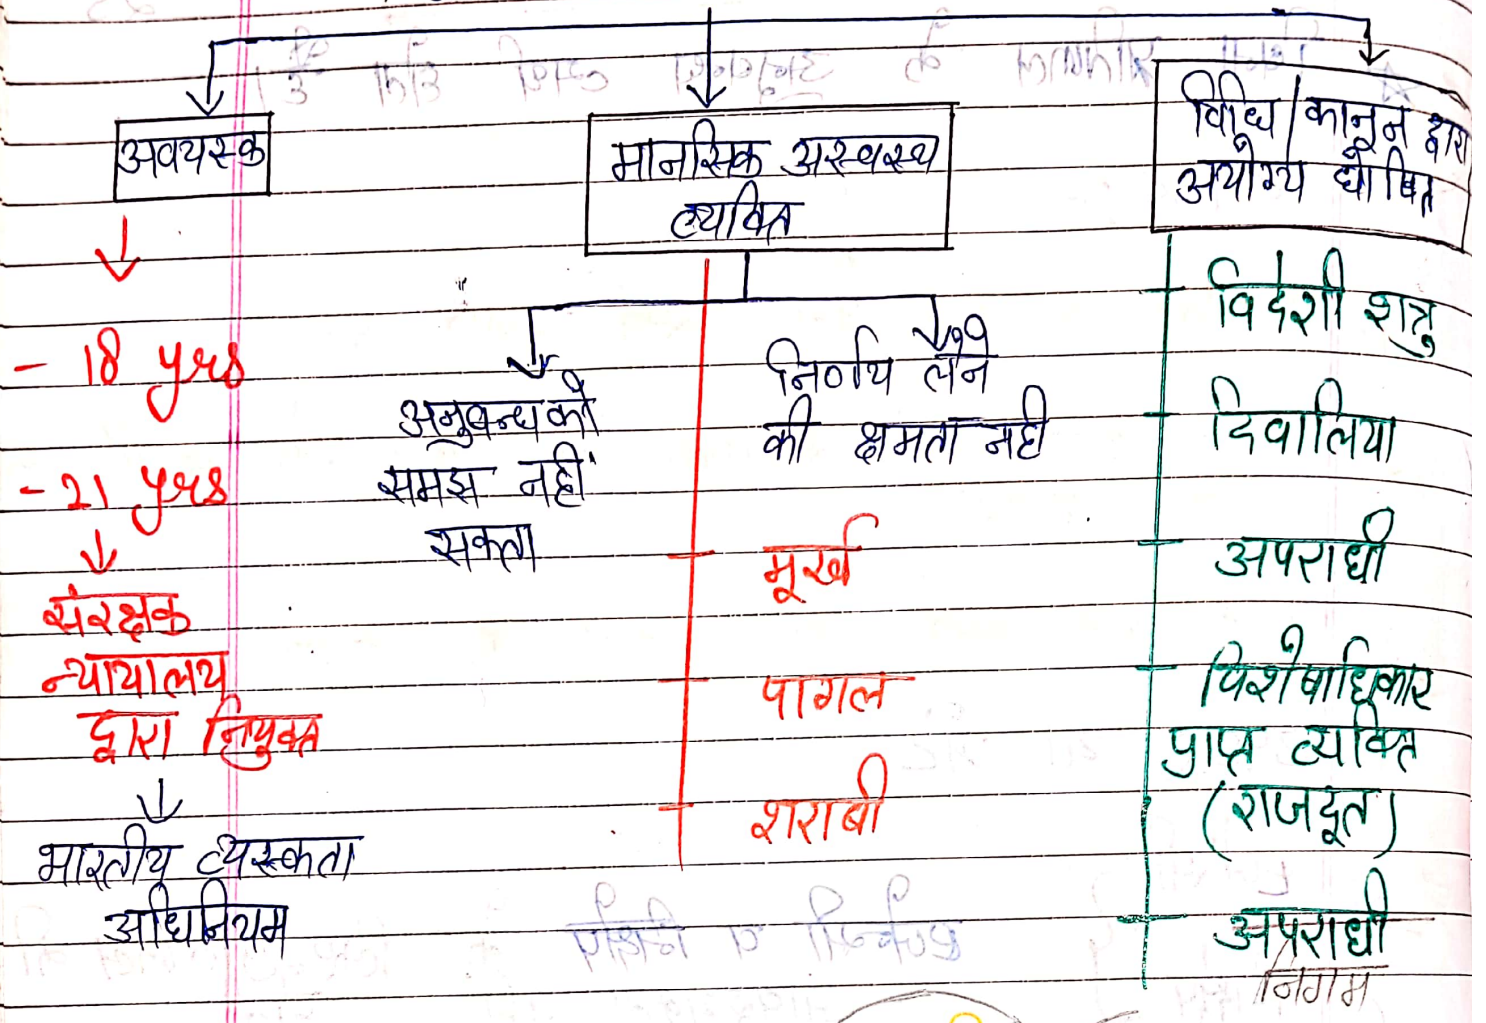 अवयस्क
- 18 yrs
- 21 yrs
संरक्षक
न्यायालय
द्वारा नियुक्त
भारतीय व्यस्कता
अधिनियम
मानसिक अस्वस्थ
व्यक्ति
अनुबन्ध को
समझ नहीं
सकता
निर्णय लेने
की क्षमता नही
मूर्ख
पागल
शराबी
विधि/कानून द्वारा
अयोग्य घोषित
विदेशी शत्रु
दिवालिया
अपराधी
विशेषाधिकार
प्राप्त व्यक्ति
(राजदूत)
अपराधी
निगम